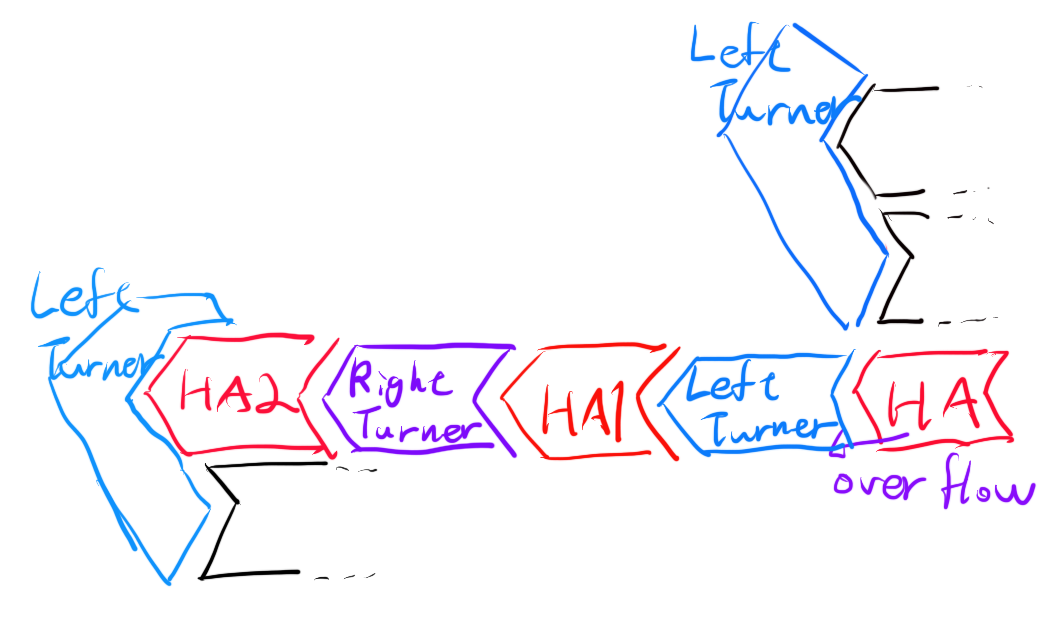 Left
Turner
Left
Turner
HA2
Right
Turner
HA1
Left
Turner
HA
over flow